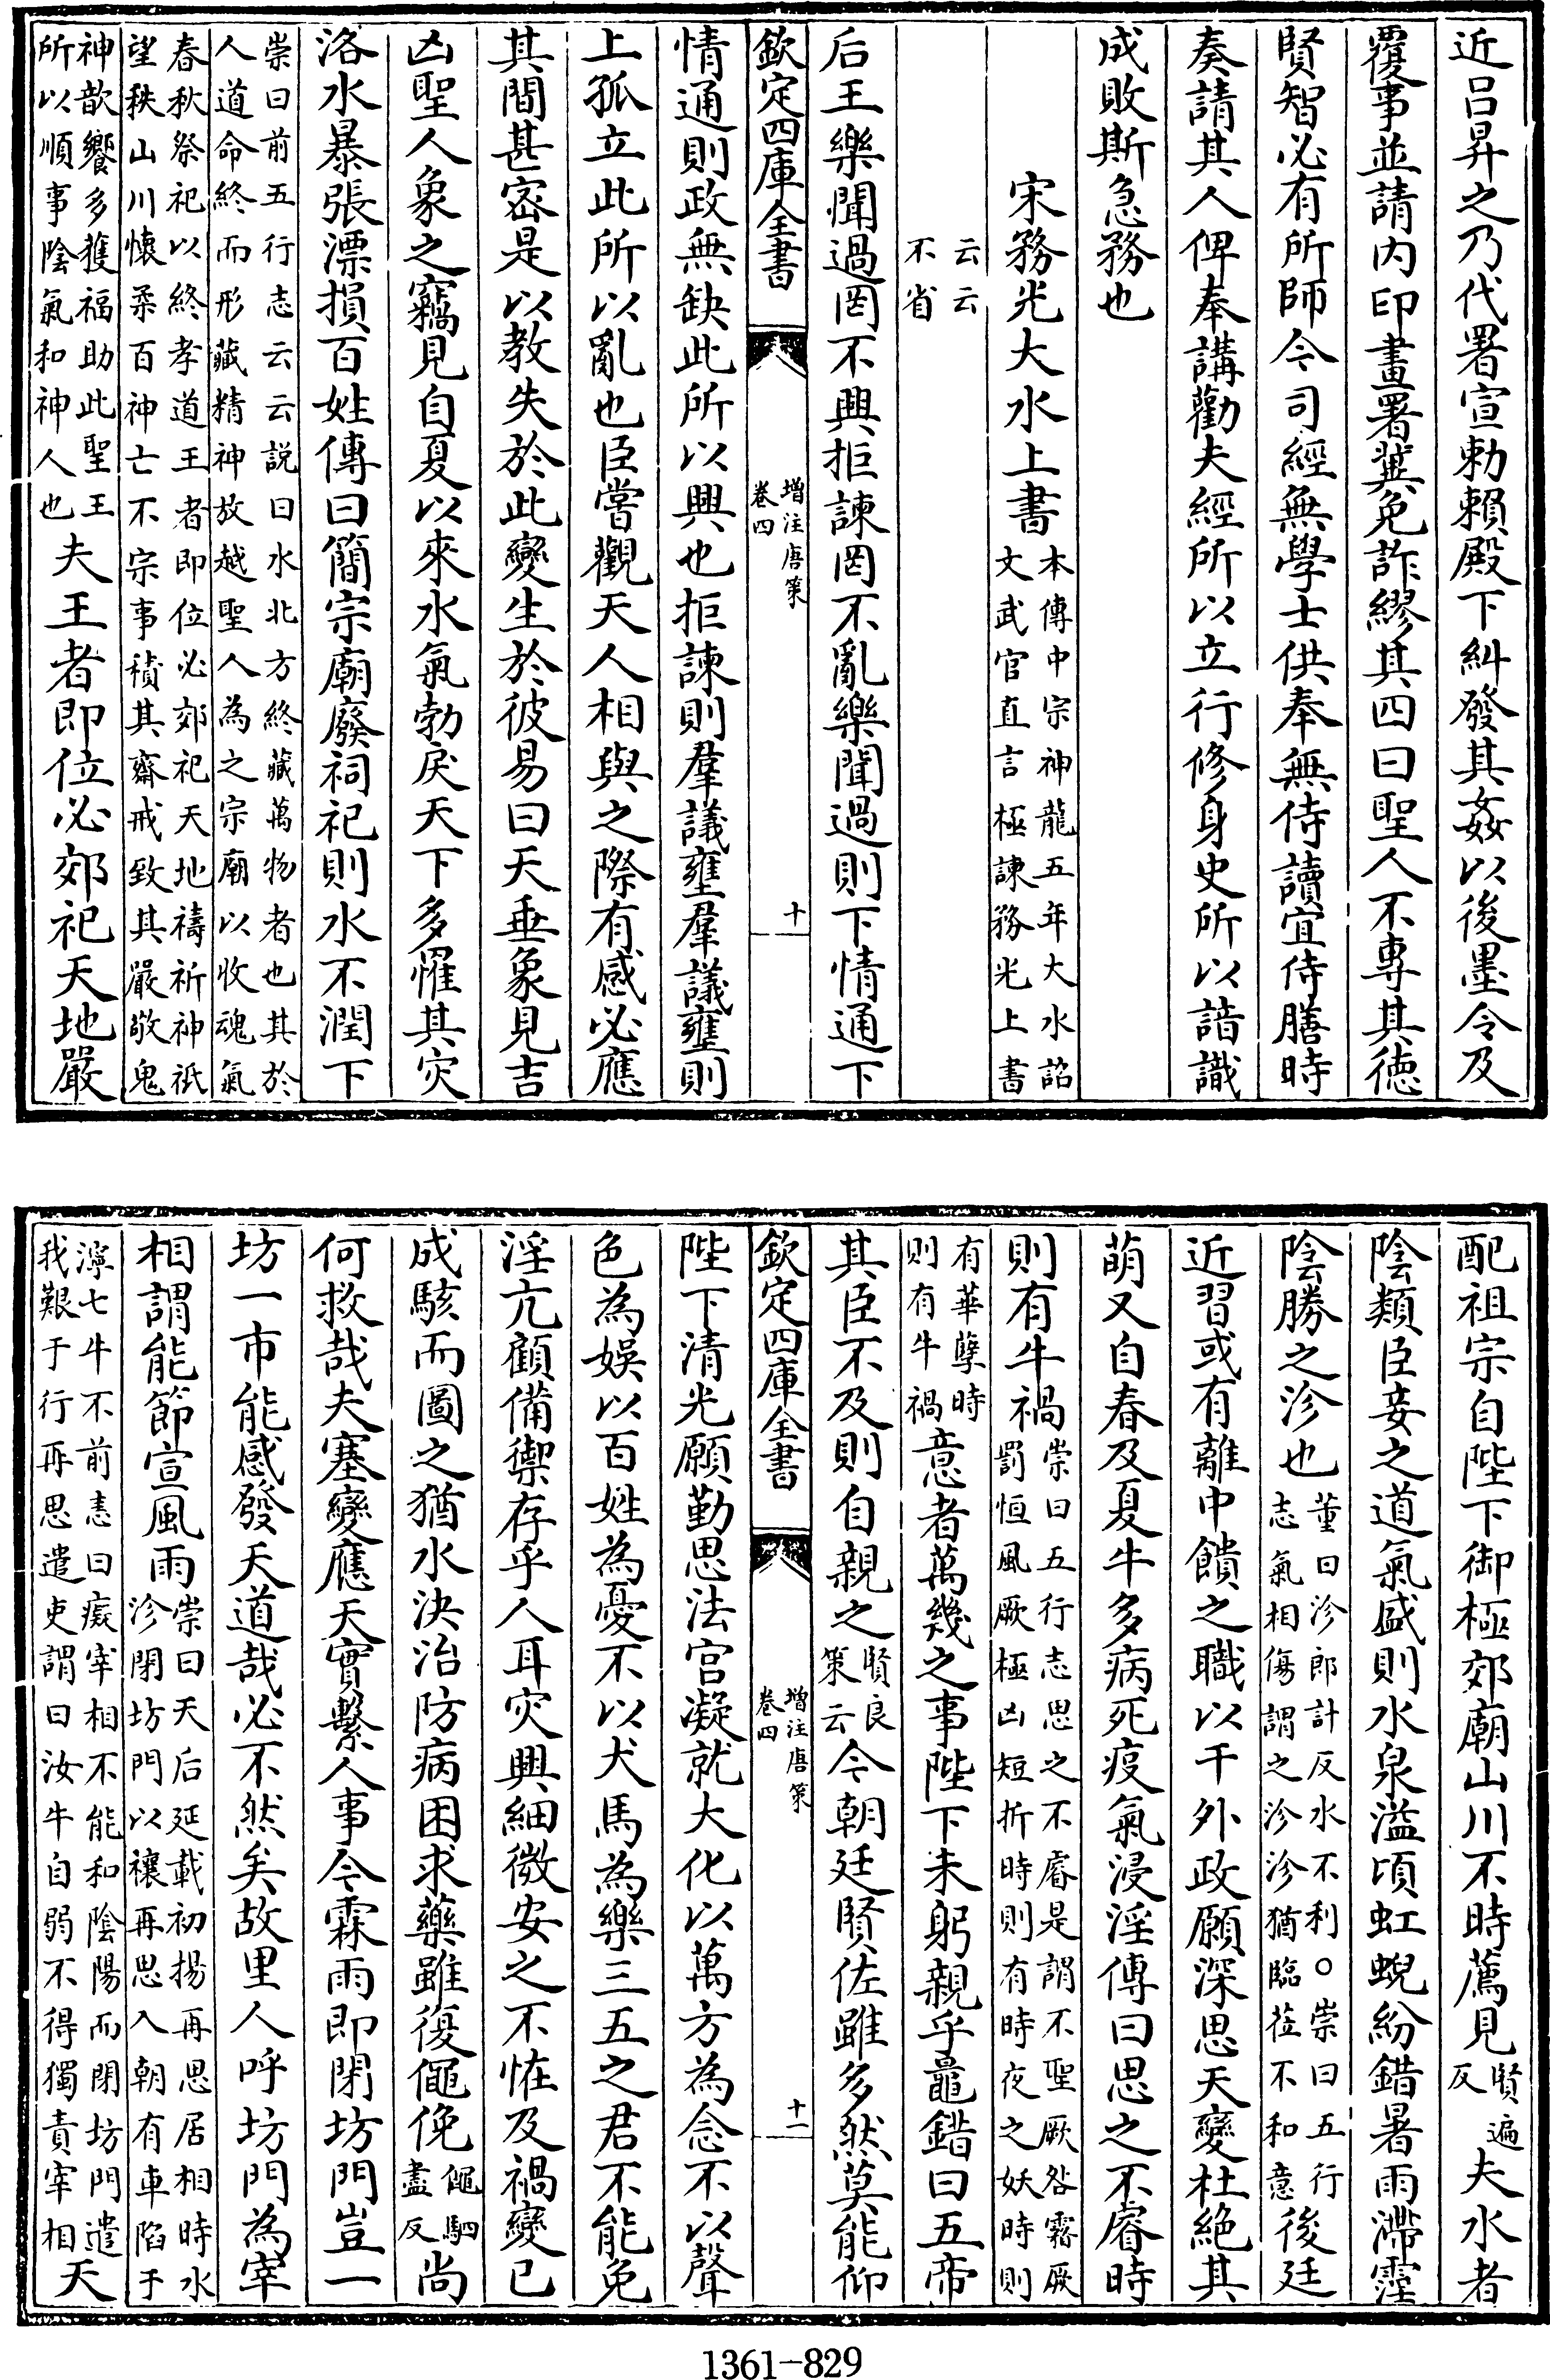 近吕昇之乃代署宣勅賴殿下糾發其姦以後墨令及
覆事並請内印畫署冀免詐繆其四曰聖人不專其徳
賢智必有所師今司經無學士供奉無侍讀宜侍膳時
奏請其人俾奉講勸夫經所以立行修身史所以諳識
成敗斯急務也
宋務光大水上書本傳中宗神龍五年大水詔
文武官直言極諫務光上書
云云
不省
后王樂聞過罔不興拒諫罔不亂樂聞過則下情通下
欽定四庫全書
增注唐策
卷四
十
情通則政無缺此所以興也拒諫則羣議壅羣議壅則
上孤立此所以亂也臣嘗觀天人相與之際有感必應
其間甚宻是以教失於此變生於彼易曰天垂象見吉
凶聖人象之竊見自夏以來水氣勃戾天下多罹其灾
洛水暴張漂損百姓傳曰簡宗廟廢祠祀則水不潤下
崇曰前五行志云云説曰水北方終藏萬物者也其於
人道命終而形藏精神放越聖人為之宗廟以收魂氣
春秋祭祀以終孝道王者即位必郊祀天地禱祈神祇
望秩山川懷柔百神亡不宗事積其齋戒致其嚴敬鬼
神歆饗多獲福助此聖王
所以順事陰氣和神人也夫王者即位必郊祀天地嚴
配祖宗自陛下御極郊廟山川不時薦見賢遍
反夫水者
陰類臣妾之道氣盛則水泉溢頃虹蜺紛錯暑雨滯霪
陰勝之沴也董曰沴郎計反水不利○崇曰五行
志氣相傷謂之沴沴猶臨莅不和意後廷
近習或有離中饋之職以干外政願深思天變杜絶其
萌又自春及夏牛多病死疫氣浸淫傳曰思之不睿時
則有牛禍崇曰五行志思之不睿是謂不聖厥咎霧厥
罰恒風厥極凶短折時則有時夜之妖時則
有華孽時
則有牛禍意者萬幾之事陛下未躬親乎鼂錯曰五帝
其臣不及則自親之賢良
策云今朝廷賢佐雖多然莫能仰
欽定四庫全書
增注唐策
卷四
十一
陛下清光願勤思法宫凝就大化以萬方為念不以聲
色為娛以百姓為憂不以犬馬為樂三五之君不能免
淫亢顧備禦存乎人耳灾興細微安之不怪及禍變已
成駭而圖之猶水決治防病困求藥雖復僶俛僶駟
盡反尚
何救哉夫塞變應天實繫人事今霖雨即閉坊門豈一
坊一市能感發天道哉必不然矣故里人呼坊門為宰
相謂能節宣風雨崇曰天后延載初揚再思居相時水
沴閉坊門以禳再思入朝有車陷于
濘七牛不前恚曰癡宰相不能和陰陽而閉坊門遣
我艱于行再思遣吏謂曰汝牛自弱不得獨責宰相天
1361-829